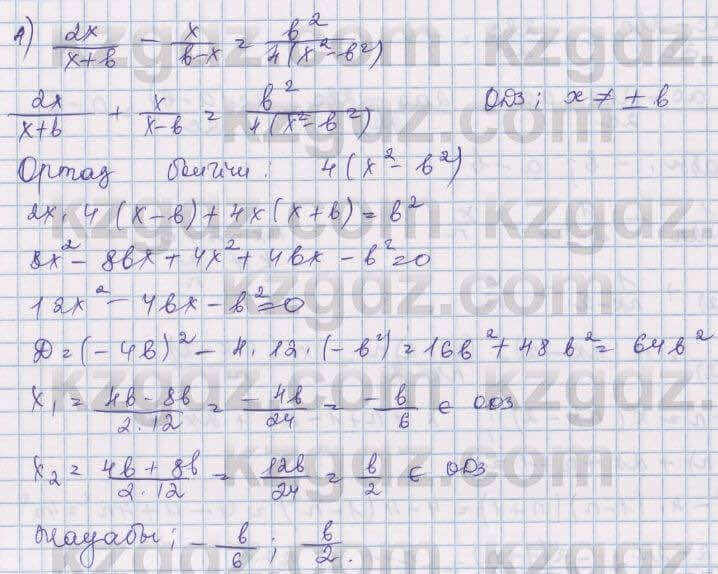 1) 2x/(x+b) - x/(b-x) = b²/(4(x²-b²))
2x/(x+b) + x/(x-b) = b²/(4(x²-b²)) ОДЗ; x ≠ ± b
Ортақ бөлгіш: 4(x²-b²)
2x·4(x-b)+4x(x+b)=b²
8x²-8bx+4x²+4bx-b²=0
12x²-4bx-b²=0
D=(-4b)²-4·12·(-b²)=16b²+48b²=64b²
x₁ = (4b-8b)/(2·12) = -4b/24 = -b/6 ∈ ОДЗ
x₂ = (4b+8b)/(2·12) = 12b/24 = b/2 ∈ ОДЗ
Жауабы; -b/6; b/2.
kzgdz.com